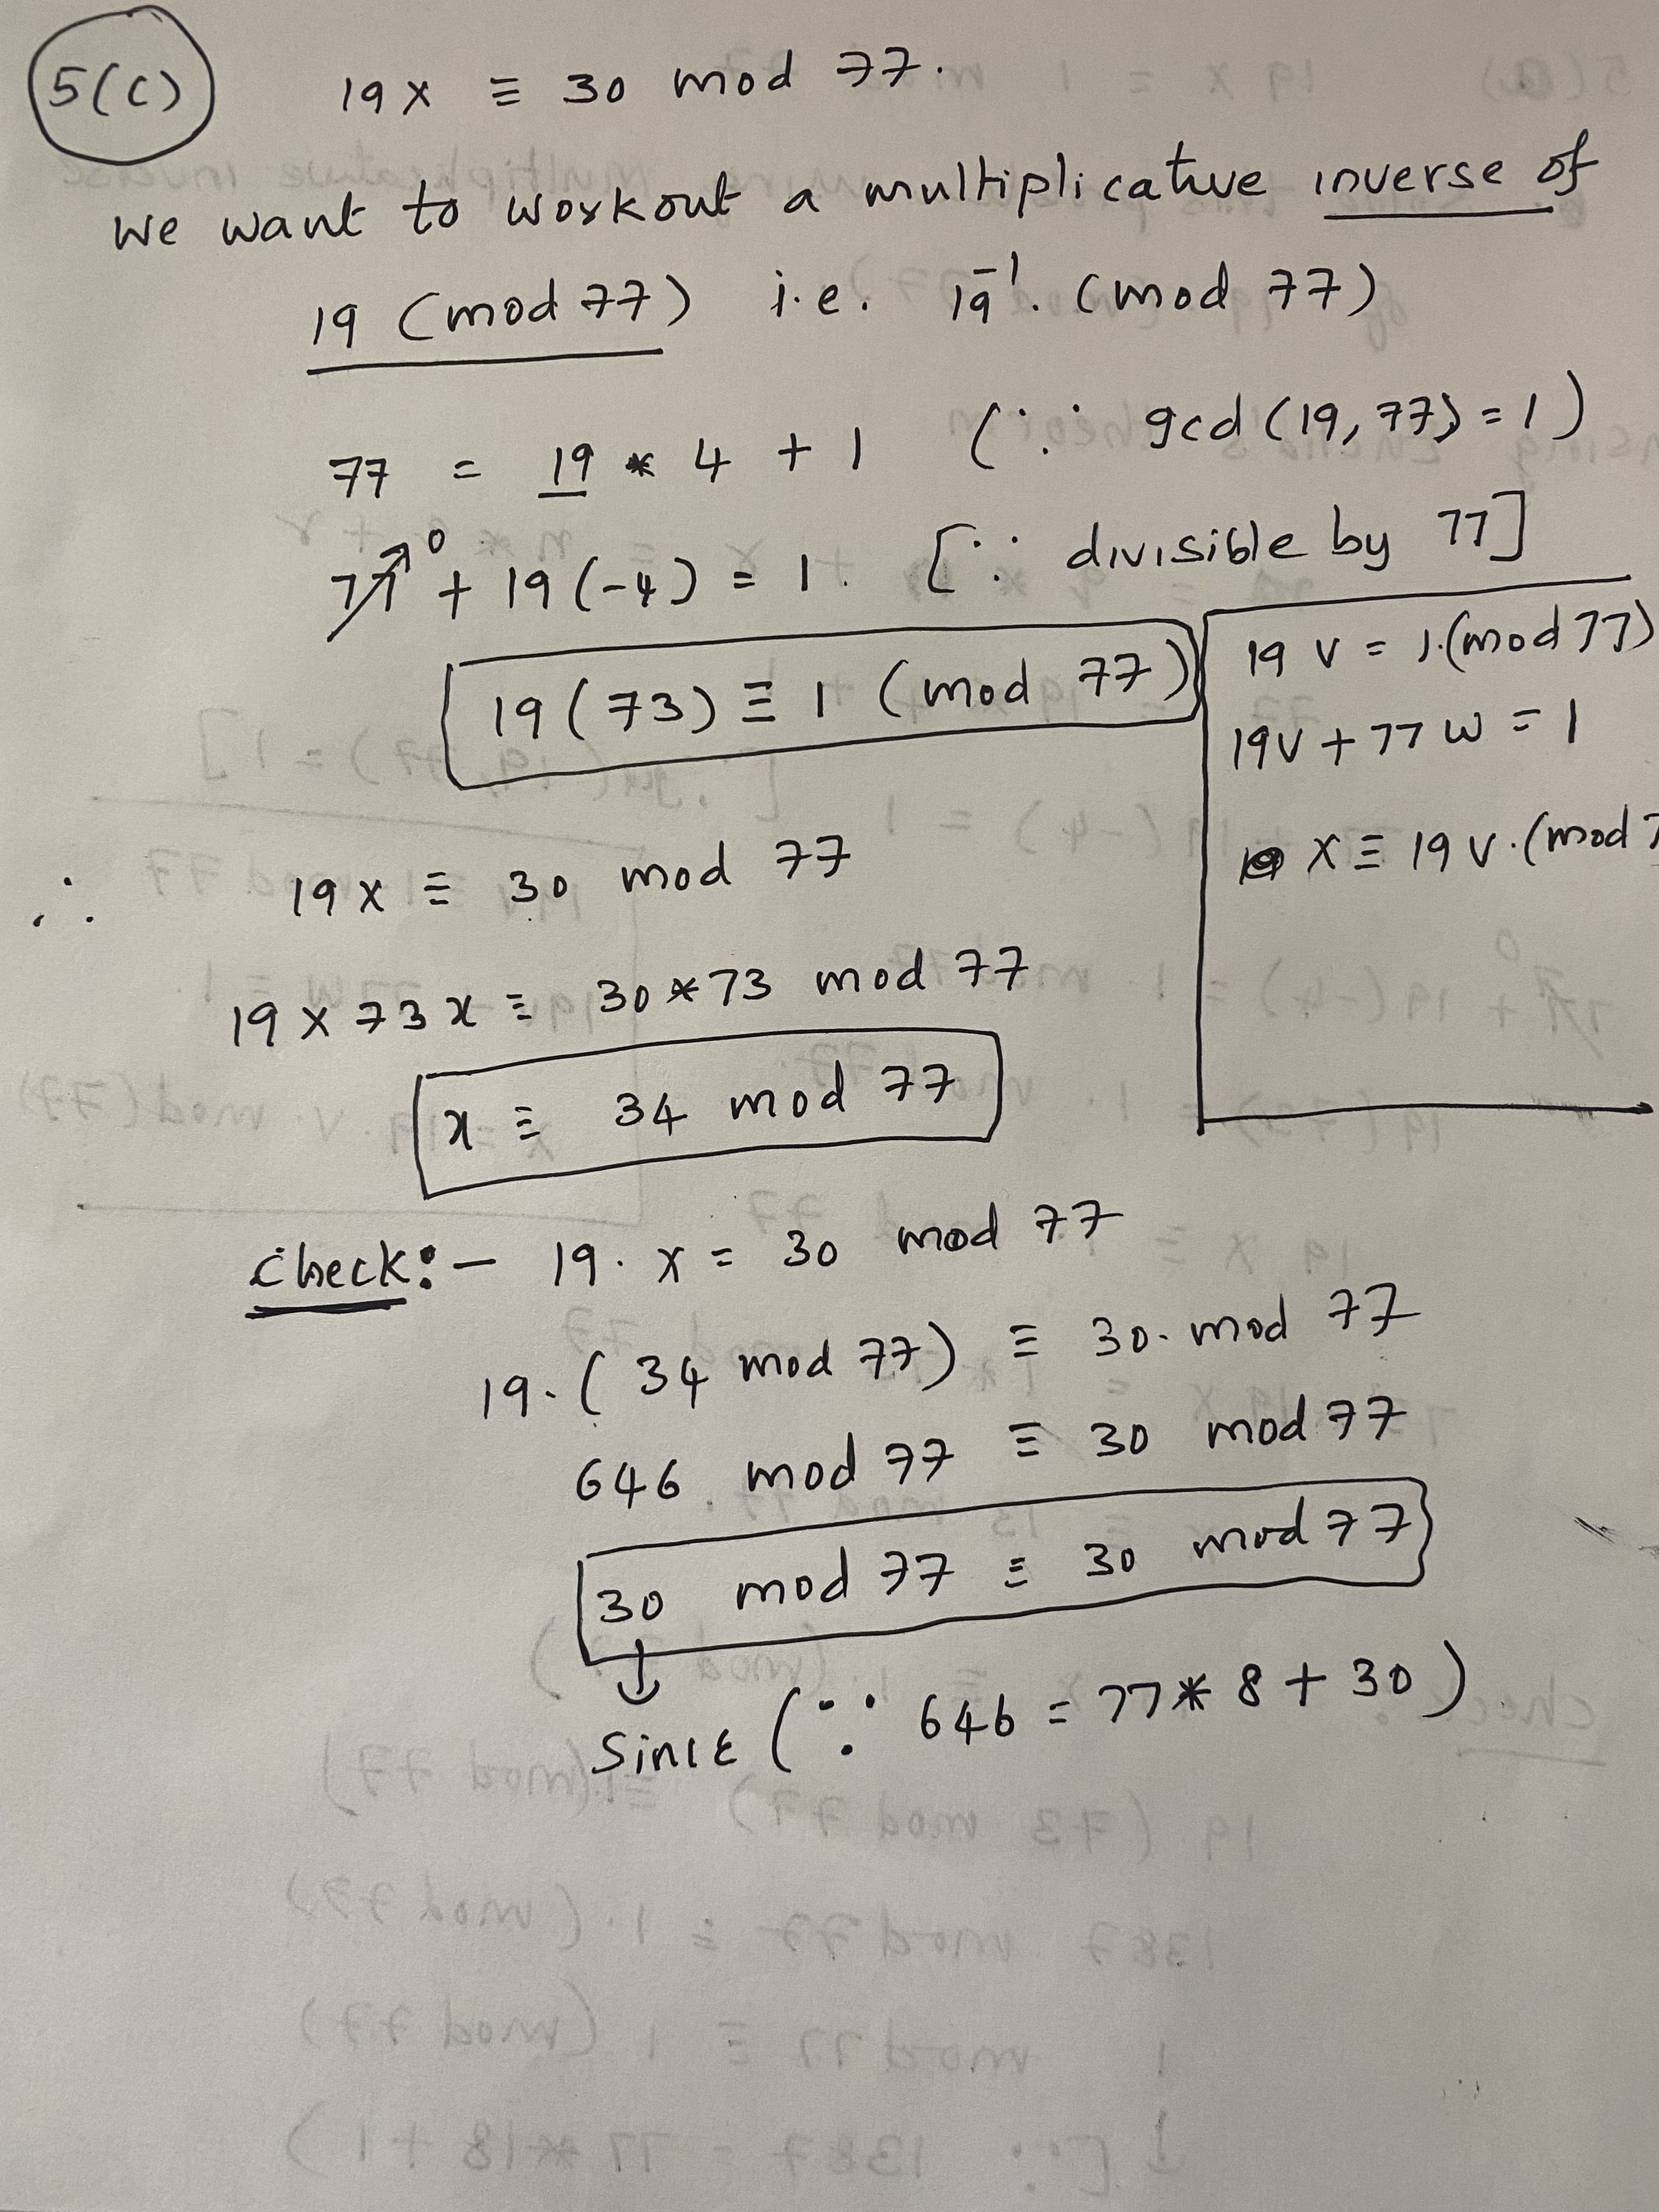 5(c)
19x ≡ 30 mod 77.
We want to workout a multiplicative inverse of
19 (mod 77) i.e. 19⁻¹. (mod 77)
77 = 19 * 4 + 1 (∵ gcd (19, 77) = 1)
77 ↗0 + 19 (-4) = 1. [∵ divisible by 77]
19 (73) ≡ 1 (mod 77)
19 v = 1.(mod 77)
19v + 77 w = 1
x ≡ 19 v.(mod 7
∴ 19x ≡ 30 mod 77
19 x 73 x ≡ 30*73 mod 77
x ≡ 34 mod 77
Check:- 19. x = 30 mod 77
19. (34 mod 77) ≡ 30. mod 77
646 mod 77 ≡ 30 mod 77
30 mod 77 ≡ 30 mod 77
↓
Since (∵ 646 = 77 * 8 + 30)